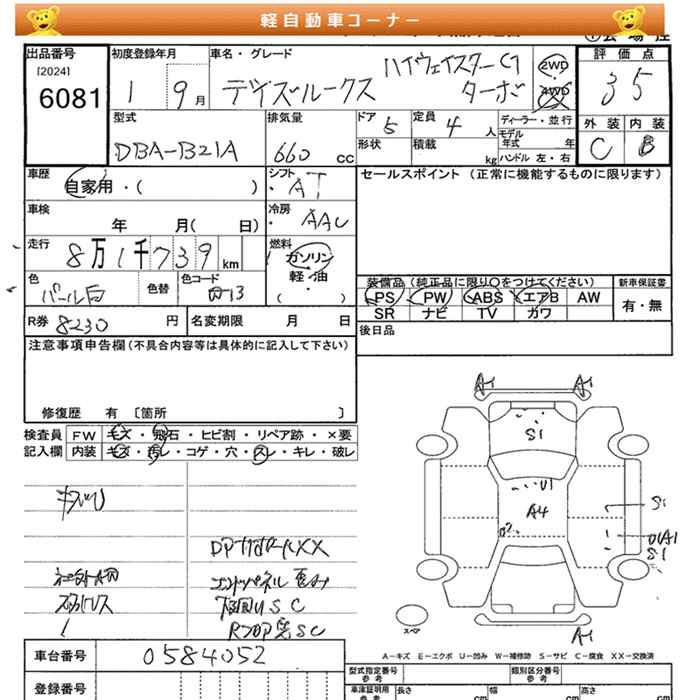 軽自動車コーナー
出品番号
[2024]
6081
初度登録年月
1 9月
車名・グレード
ハイウェイスターGT
デイズルークス ターボ
2WD
4WD
評価点
3 5
外装 内装
C B
型式
DBA-B21A
排気量
660 CC
ドア 5
形状
定員 4 人
積載 kg
ディーラー・並行
モデル年式 年
ハンドル 左・右
車歴
自家用・( )
シフト
・AT
セールスポイント (正常に機能するものに限ります)
車検
年 月( 日)
冷房
・AAC
走行
8万1千739km
燃料
ガソリン
軽・油
( )
色
パール白
色替
色コード
装備品(純正品に限り○をつけてください)
新車保証書
PS PW ABS エアB AW
有・無
SR ナビ TV カワ
R券 8230 円
名変期限 月 日
後日品
注意事項申告欄(不具合内容等は具体的に記入して下さい)
修復歴 有 〔箇所 〕
検査員
記入欄
FW キズ・飛石・ヒビ割・リペア跡・×要
内装 キズ・汚レ・コゲ・穴・スレ・キレ・破レ
A1 A1
S1
U1
A4
S1
S1
A1
スペア
A-キズ E-エクボ U-凹み W-補修跡 S-サビ C-腐食 XX-交換済
車台番号
0584052
登録番号
型式指定番号
参考
類別区分番号
参考
車庫証明用
参考
長さ cm
幅 cm
高さ cm